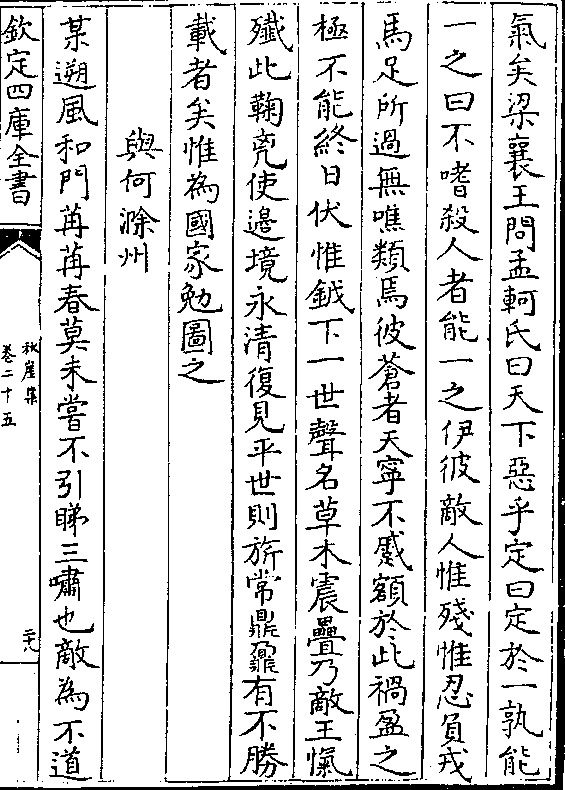 氣矣梁襄王問孟軻氏曰天下惡乎定曰定於一孰能
一之曰不嗜殺人者能一之伊彼敵人惟殘惟忍負戎
馬足所過無噍類焉彼蒼者天寧不慼額於此禍盈之
極不能終日伏惟鉞下一世聲名草木震疊乃敵王愾
殲此鞠兇使邊境永清復見平世則旂常鼎鼐有不勝
載者矣惟為國家勉圖之
與何滁州
某遡風和門苒苒春莫未嘗不引睇三嘯也敵為不道
欽定四庫全書
秋崖集
卷二十五